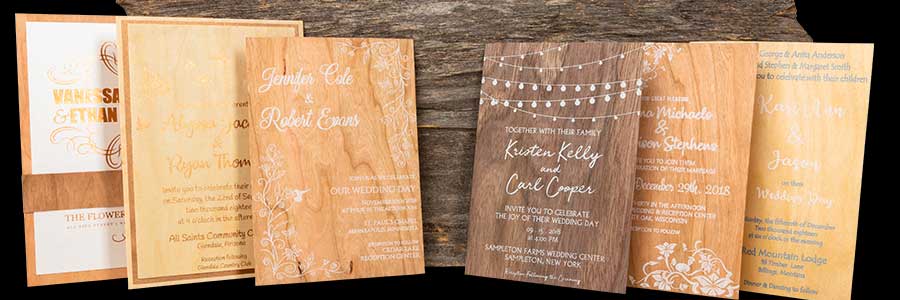 VANESSA
& ETHAN
THE FLOWER
Alyssa Jac
&
Ryan Thom
invite you to celebrate their
on Saturday, the 22nd of Sep
two thousand eighteen
at 4 o'clock in the afternoon
All Saints Community C
Glendale, Arizona
Reception Following
Glendale Country Club
Jennifer Cole
&
Robert Evans
OUR WEDDING DAY
ST. PAUL'S CHAPEL
MINNEAPOLIS, MINNESOTA
RECEPTION CENTER
TOGETHER WITH THEIR FAMILY
Kristen Kelly
and
Carl Cooper
INVITE YOU TO CELEBRATE
THE JOY OF THEIR WEDDING DAY
09. 15. 2018
at 4:00 PM
SAMPLETON FARMS WEDDING CENTER
SAMPLETON, NEW YORK
Reception Following the Ceremony
GREAT PLEASURE
na Michaels
&
wen Stephens
INVITATION TO JOIN THEM
RATION OF THEIR MARRIAGE
December 29th, 2018
IN THE AFTERNOON
WEDDING & RECEPTION CENTER
OAK, WISCONSIN
TO FOLLOW
George & Anita Anderson
nd Stephen & Margaret Smith
you to celebrate with their children
Kari Ann
&
Jason
on their
Wedding Day
nday, the fifteenth of December
Two thousand eighteen
at six o'clock in the evening
Red Mountain Lodge
12 Timber Lane
Billings, Montana
Dinner & Dancing to follow